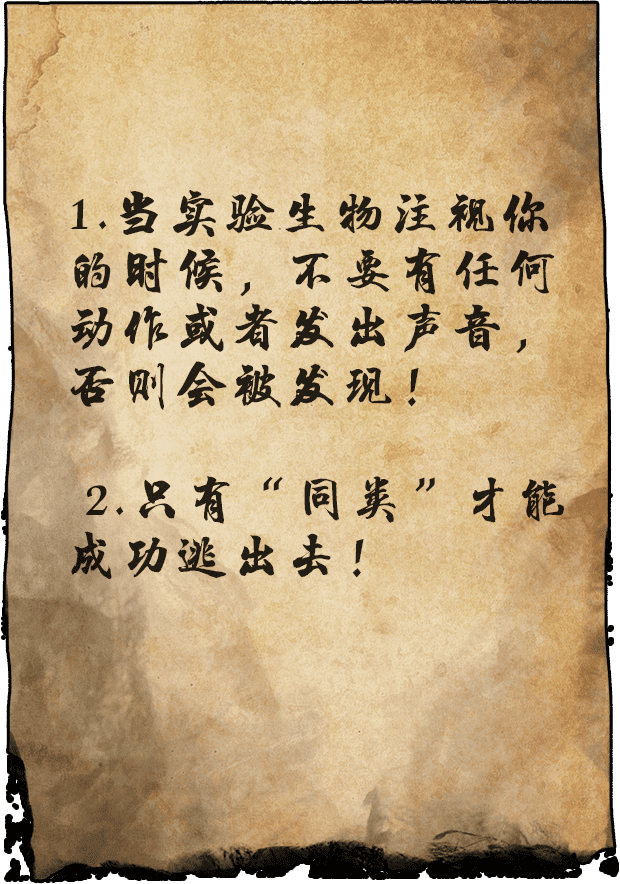 1.当实验生物注视你
的时候，不要有任何
动作或者发出声音，
否则会被发现！
2.只有“同类”才能
成功逃出去！